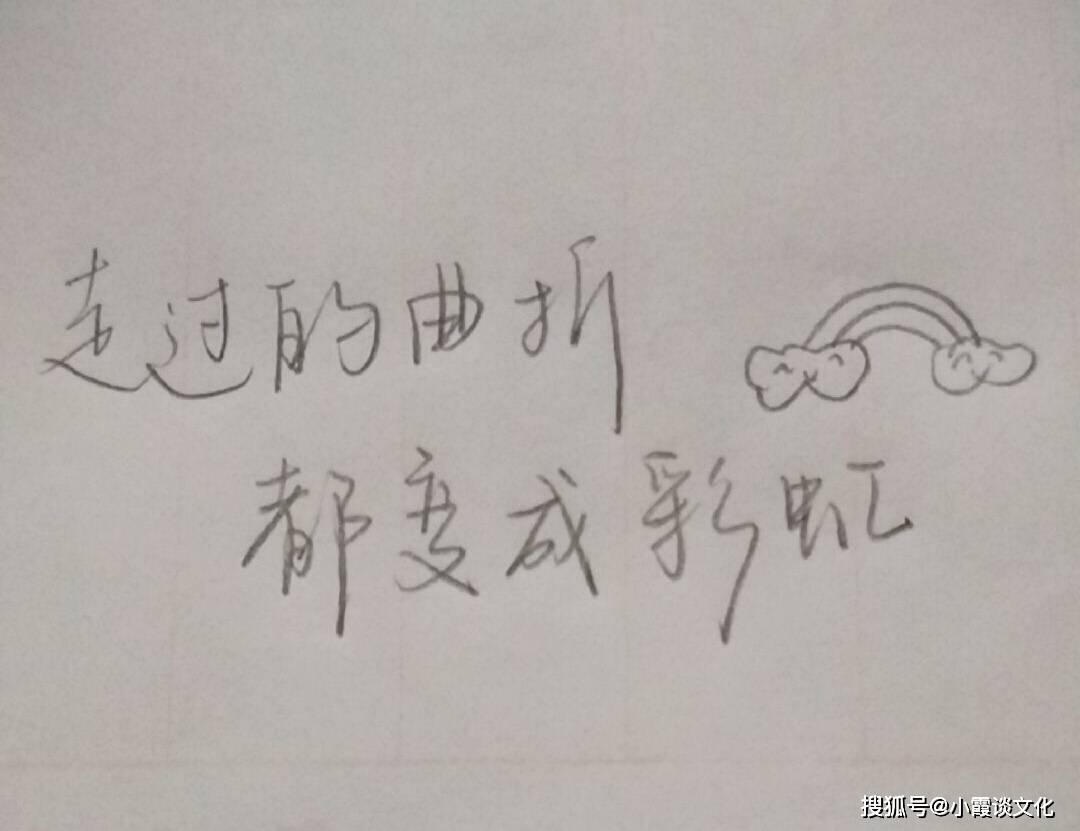 走过的曲折
都变成彩虹
搜狐号@小霞谈文化